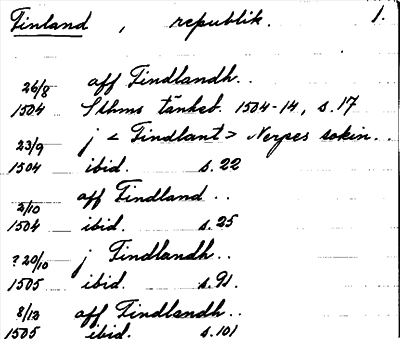 Finland, republik. 1.
26/8 aff Findlandh..
1504 Sthms tänkeb. 1504-14, s.17
23/9 j < Findlant > Nerpes sokin..
1504 ibid. s.22
2/10 aff Findland..
1504 ibid. s.25
? 20/10 j Findlandh..
1505 ibid. s.91.
8/12 aff Findlandh..
1505 ibid. s.101